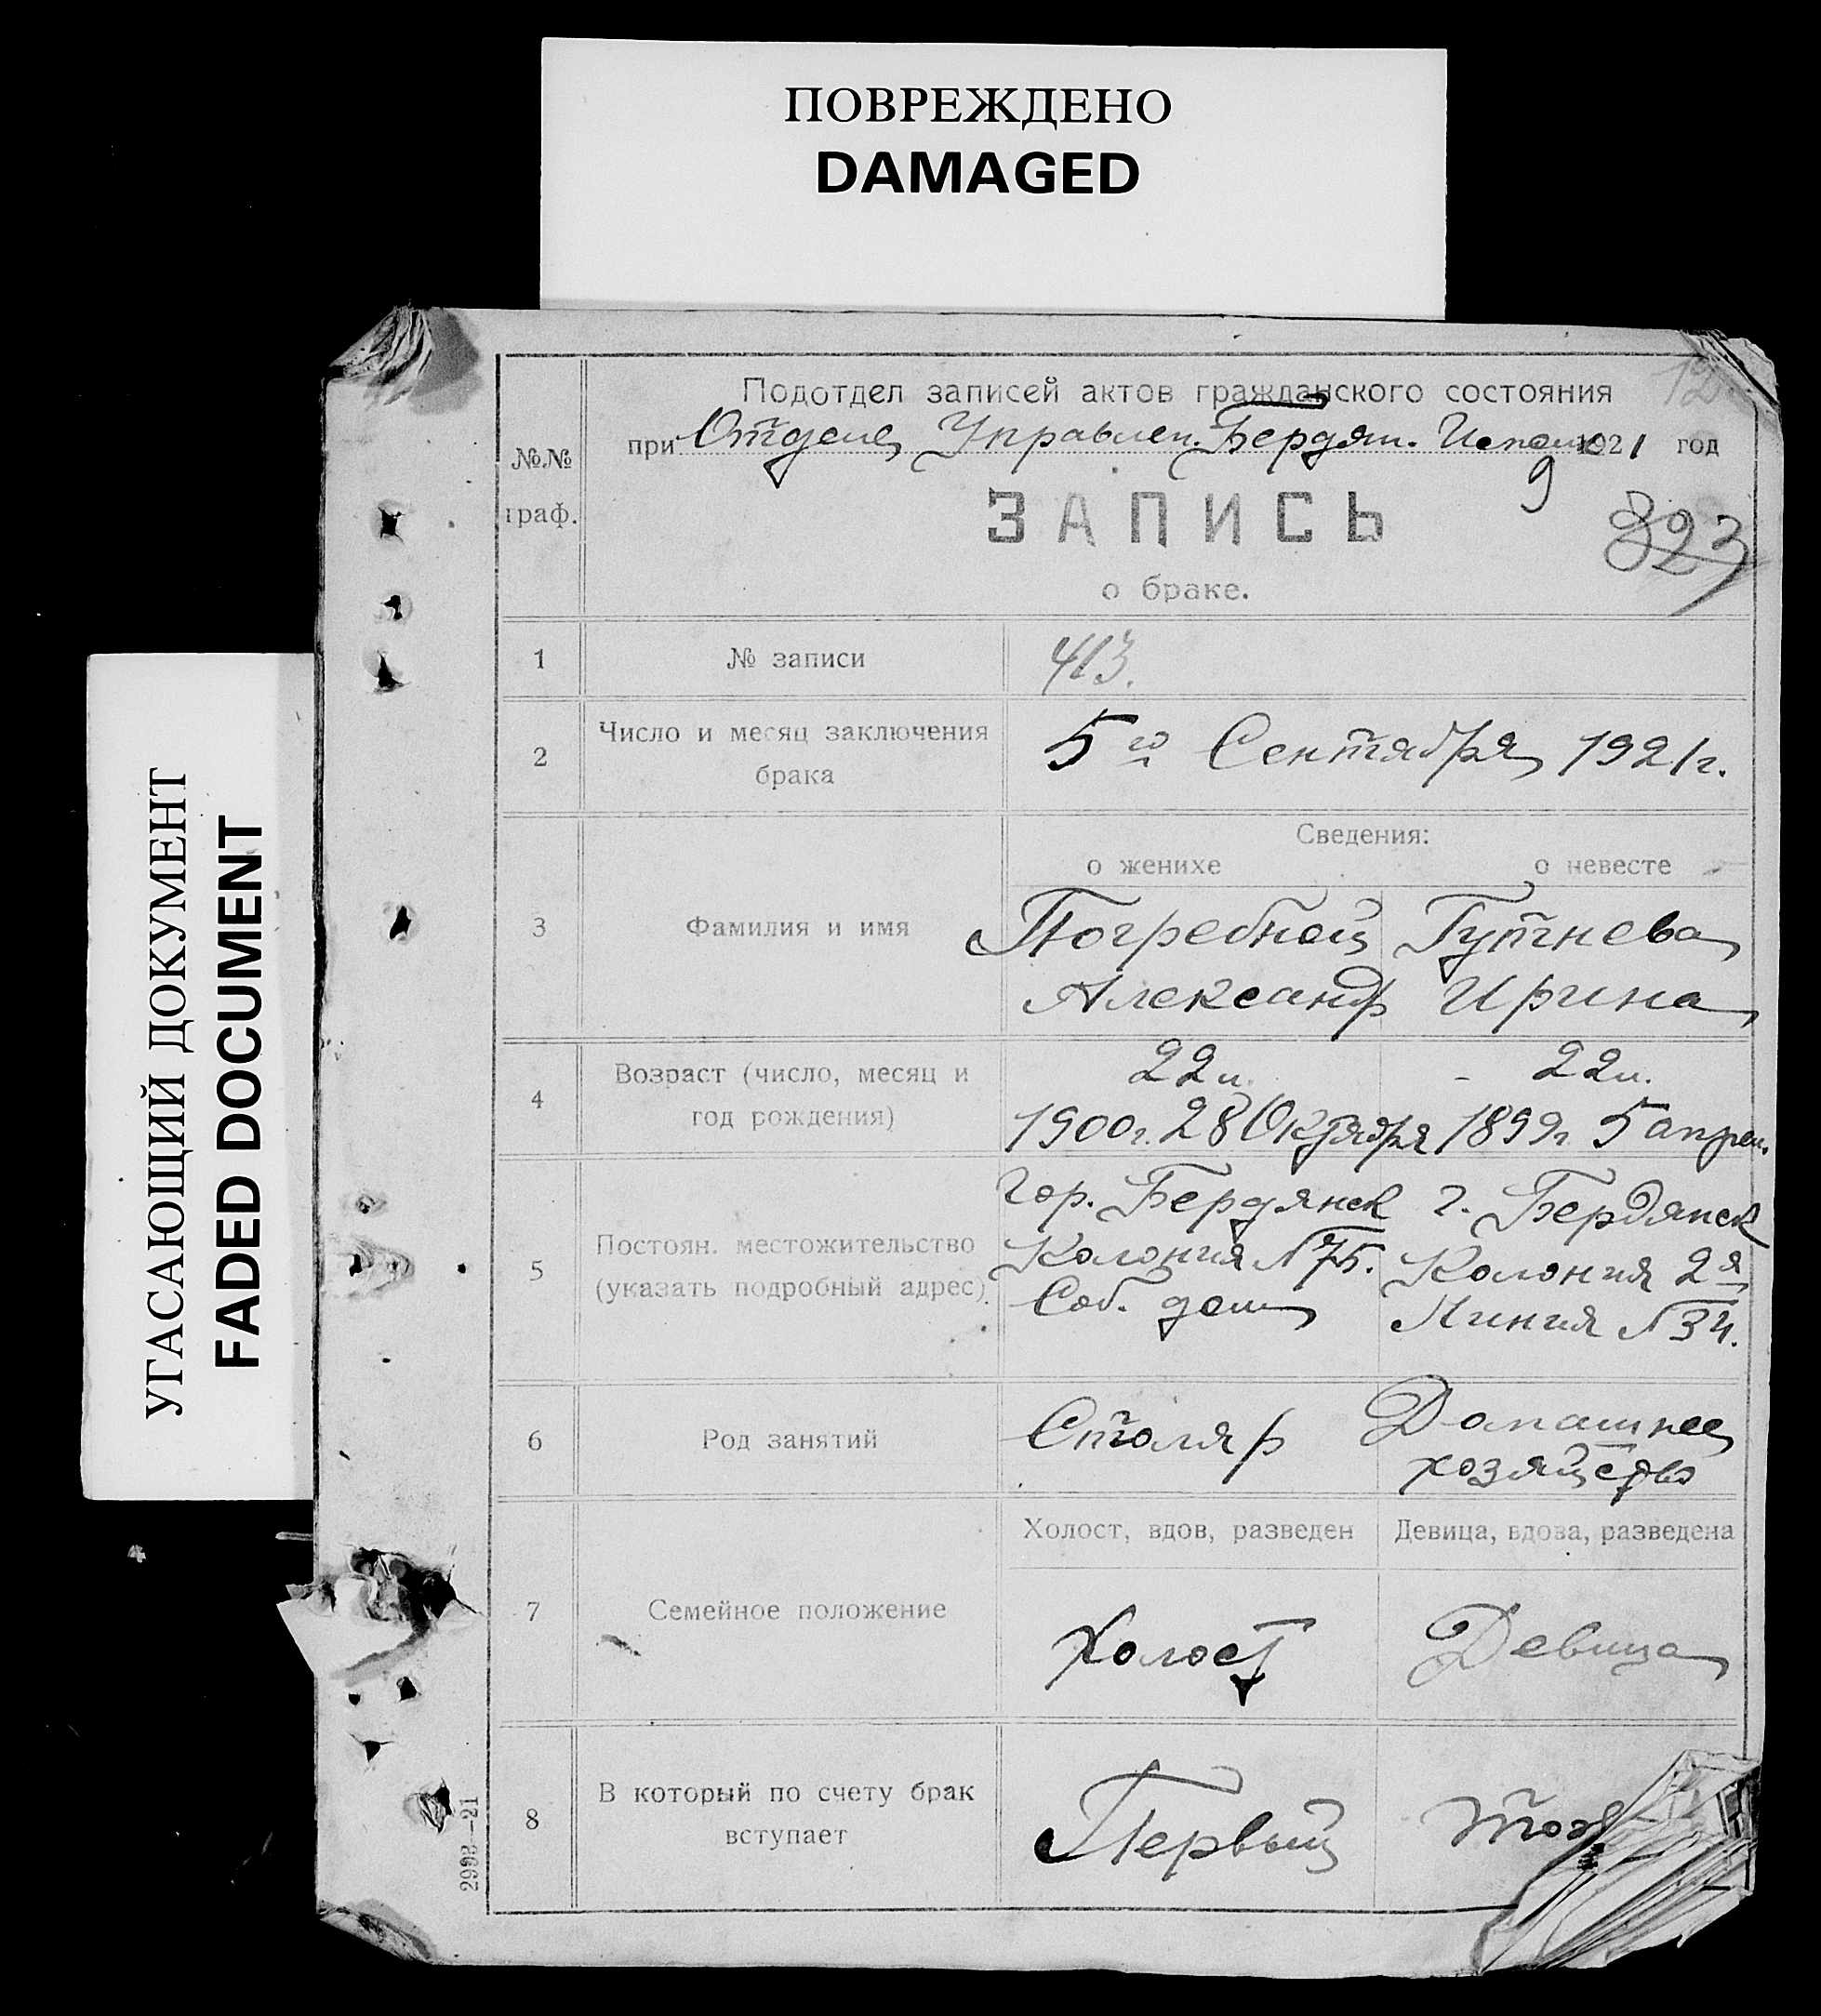 ПОВРЕЖДЕНО
DAMAGED
УГАСАЮЩИЙ ДОКУМЕНТ
FADED DOCUMENT
12
№№ граф.
Подотдел записей актов гражданского состояния
при Отделе Управлен. Бердян. Исполк 1921 год
9
ЗАПИСЬ
323
о браке.
1 № записи 413.
2 Число и месяц заключения брака 5го Сентября 1921г.
Сведения:
о женихе о невесте
3 Фамилия и имя
Погребной Гутнева
Александр Ирина
4 Возраст (число, месяц и год рождения)
22 л. - 22 л.
1900г. 28 Октября 1899г. 5 апрел.
5 Постоян. местожительство (указать подробный адрес)
Гор. Бердянск г. Бердянск
Колония №75. Колония 2я
Соб. дом Линия №34.
6 Род занятий
Столяр Домашнее
хозяйство
Холост, вдов, разведен Девица, вдова, разведена
7 Семейное положение
Холост Девица
8 В который по счету брак вступает
Первый тож
2993—21